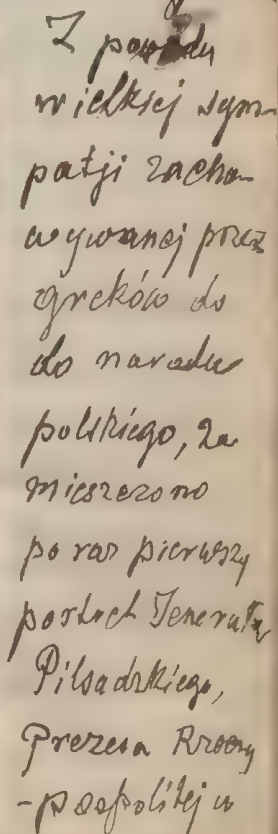 Z powodu
wielkiej sym-
patji zacho-
wywanej przez
greków do
do narodu
polskiego, za
mieszczono
po raz pierwszy
portret Jenerała
Pilsudzkiego,
Prezesa Rzeczy
-pospolitej w